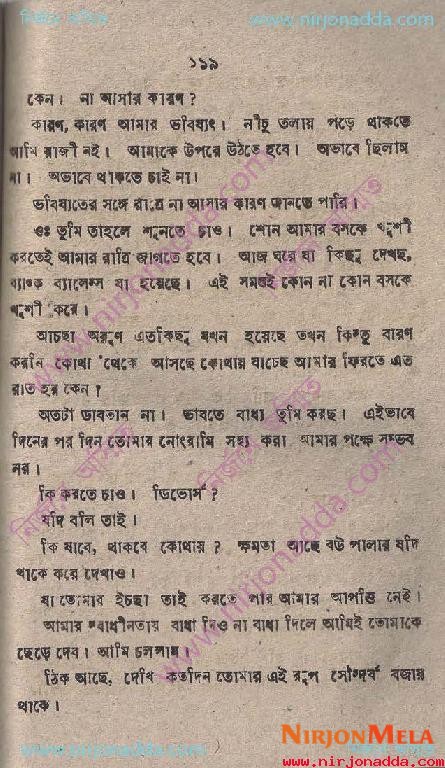 নির্জন অসিত www.nirjonadda.com
১১৯
কেন। না আসার কারণ ?
কারণ, কারণ আমার ভবিষ্যৎ। নীচু তলায় পড়ে থাকতে
আমি রাজী নই। আমাকে উপরে উঠতে হবে। অভাবে ছিলাম
না। অভাবে থাকতে চাই না।
ভবিষ্যতের সঙ্গে রাত্রে না আসার কারণ জানতে পারি।
ওঃ তুমি তাহলে শুনতে চাও। শোন আমার বসকে খুশী
করতেই আমার রাত্রি জাগতে হবে। আজ ঘরে যা কিছু দেখছ,
ব্যাংক ব্যালেন্স যা হয়েছে। এই সমস্তই কোন না কোন বসকে
খুশী করে।
আচ্ছা অরুণ এতকিছু যখন হয়েছে তখন কিন্তু বারণ
করনি কোথা থেকে আসছে কোথায় যাচ্ছে আমার ফিরতে এত
রাত হর কেন ?
অতটা ভাবতান না। ভাবতে বাধ্য তুমি করছ। এইভাবে
দিনের পর দিন তোমার নোংরামি সহ্য করা আমার পক্ষে সম্ভব
নর।
কি করতে চাও। ডিভোর্স ?
যদি বলি তাই।
কি খাবে, থাকবে কোথায় ? ক্ষমতা আছে বউ পালার যদি
থাকে করে দেখাও।
যা তোমাব ইচ্ছা তাই করতে পার আমার আপত্তি নেই।
আমার স্বাধীনতায় বাধা দিও না বাধা দিলে আমিই তোমাকে
ছেড়ে দেব। আমি চললাম।
ঠিক আছে, দেখি কতদিন তোমার এই রূপ সৌন্দর্য বজায়
থাকে।
NIRJONMELA
www.nirjonadda.com
www.nirjonadda.com